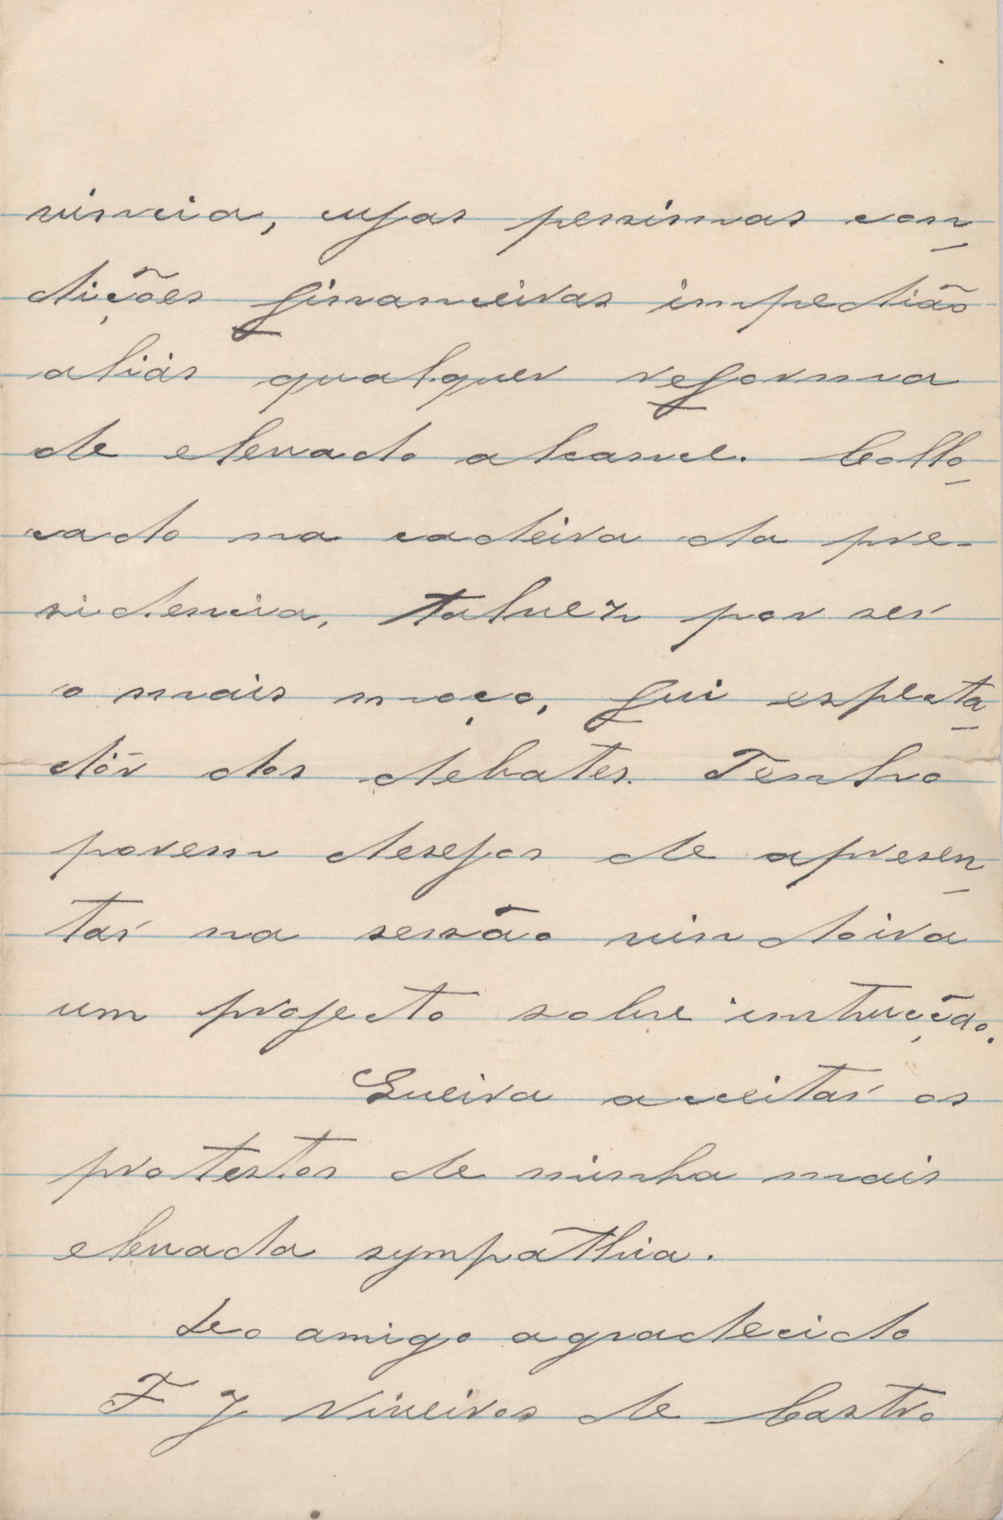 vincia, cujas pessimas con-
dições financeiras impedião
aliás qualquer reforma
de elevado alcance. Collo-
cado na cadeira da pre-
sidencia, talvez por ser
o mais moço, fui especta-
dôr dos debates. Tenho
porem desejos de apresen-
tar na sessão vindoira
um projecto sobre instrucção.
Queira aceitar os
protestos de minha mais
elevada sympathia.
Seo amigo agradecido
F J Viveiros de Castro